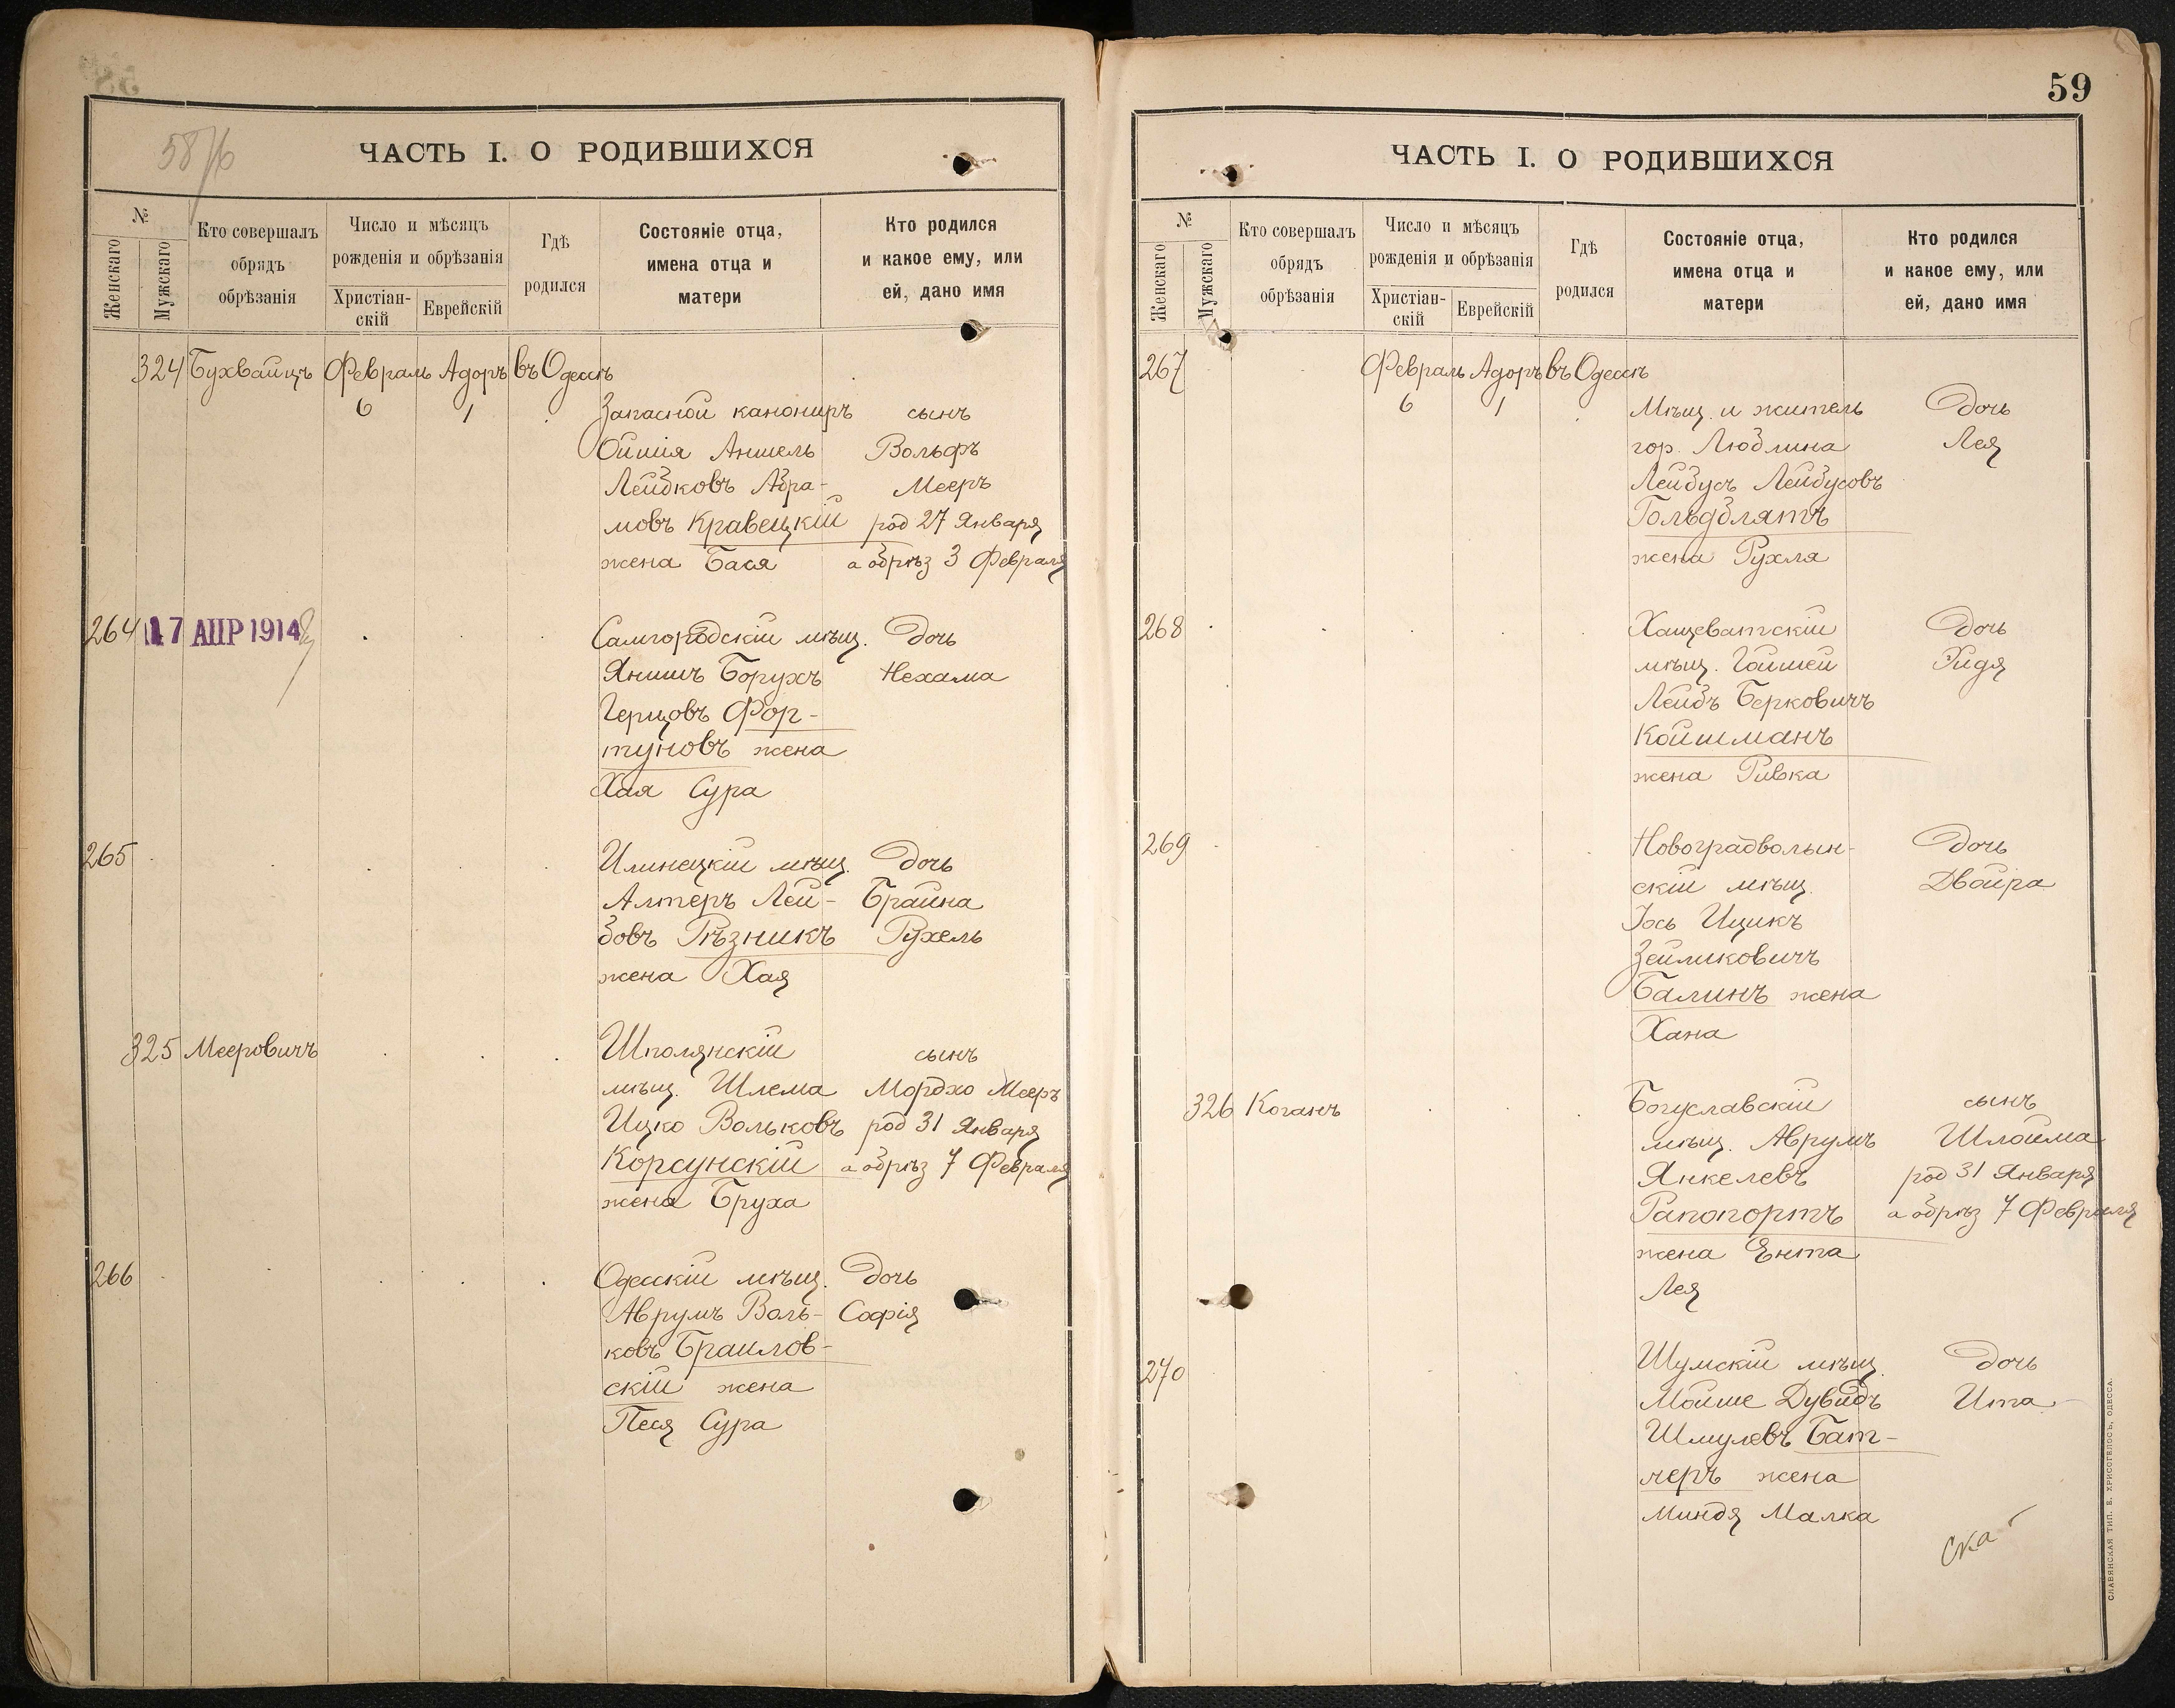 58/б
ЧАСТЬ I. О РОДИВШИХСЯ
№
Женскаго
Мужскаго
Кто совершалъ
обрядъ
обрѣзанія
Число и мѣсяцъ
рожденія и обрѣзанія
Христіан-
скій
Еврейскій
Гдѣ
родился
Состояніе отца,
имена отца и
матери
Кто родился
и какое ему, или
ей, дано имя
324 Бухвайцъ Февраль Адоръ въ Одессѣ
6 1 Запасной канониръ сынъ
Ойшія Аншель Вольфъ
Лейбковъ Абра- Мееръ
мовъ Кравецкій род 27 Января
жена Бася а обрѣз 3 Февраля
264 17 АПР 1914 Самгородскій мѣщ. дочь
Янишъ Борухъ Нехама
Герцовъ Фор-
туновъ жена
Хая Сура
265 Илинецкій мѣщ. дочь
Алтеръ Лей- Брайна
бовъ Рѣзникъ Рухель
жена Хая
325 Мееровичъ Шполянскій сынъ
мѣщ. Шлема Мордхо Мееръ
Ицко Вольковъ род 31 Января
Корсунскій а обрѣз 7 Февраля
жена Бруха
266 Одесскій мѣщ. дочь
Аврумъ Воль- Софія
ковъ Браилов-
скій жена
Песя Сура
59
ЧАСТЬ I. О РОДИВШИХСЯ
№
Женскаго
Мужскаго
Кто совершалъ
обрядъ
обрѣзанія
Число и мѣсяцъ
рожденія и обрѣзанія
Христіан-
скій
Еврейскій
Гдѣ
родился
Состояніе отца,
имена отца и
матери
Кто родился
и какое ему, или
ей, дано имя
267 Февраль Адоръ въ Одессѣ
6 1 Мѣщ. и житель дочь
гор. Люблина Лея
Лейбусъ Лейбусовъ
Гольдблятъ
жена Рухля
268 Хащеватскій дочь
мѣщ. Гойшей Эидя
Лейбъ Берковичъ
Койшманъ
жена Ривка
269 Новоградволын- дочь
скій мѣщ. Двойра
Іось Ицикъ
Зейликовичъ
Балинъ жена
Хана
326 Коганъ Богуславскій сынъ
мѣщ. Аврумъ Шлойма
Янкелевъ род 31 Января
Рапопортъ а обрѣз 7 Февраля
жена Ента
Лея
270 Шумскій мѣщ. дочь
Мойше Дувидъ Ита
Шмулевъ Бат-
леръ жена
Миндя Малка
СЛАВЯНСКАЯ ТИП. Е. ХРИСОГЕЛОСЪ, ОДЕССА.